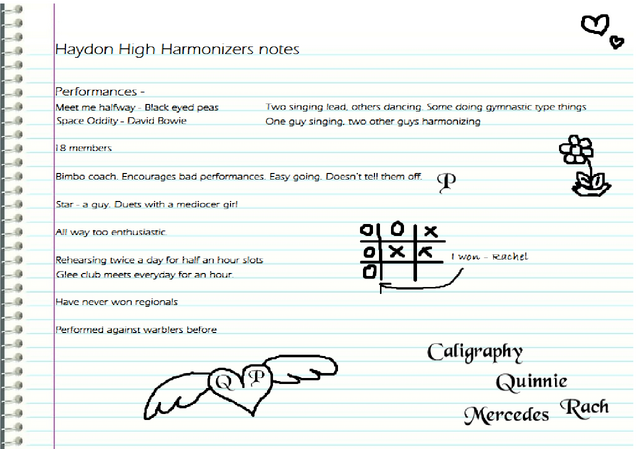 Haydon High Harmonizers notes
Performances -
Meet me halfway - Black eyed peas Two singing lead, others dancing. Some doing gymnastic type things
Space Oddity - David Bowie One guy singing, two other guys harmonizing
18 members
Bimbo coach. Encourages bad performances. Easy going. Doesn't tell them off.
P
Star - a guy. Duets with a mediocer girl
All way too enthusiastic
O O X
O X X
O
I won - Rachel
Rehearsing twice a day for half an hour slots
Glee club meets everyday for an hour.
Have never won regionals
Performed against warblers before
Q P
Caligraphy
Quinnie
Mercedes Rach